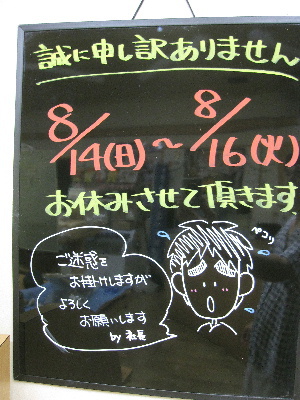 誠に申し訳ありません
8/14(日)～8/16(火)
お休みさせて頂きます
ペコリ
ご迷惑を
お掛けしますが
よろしく
お願いします
by 社長